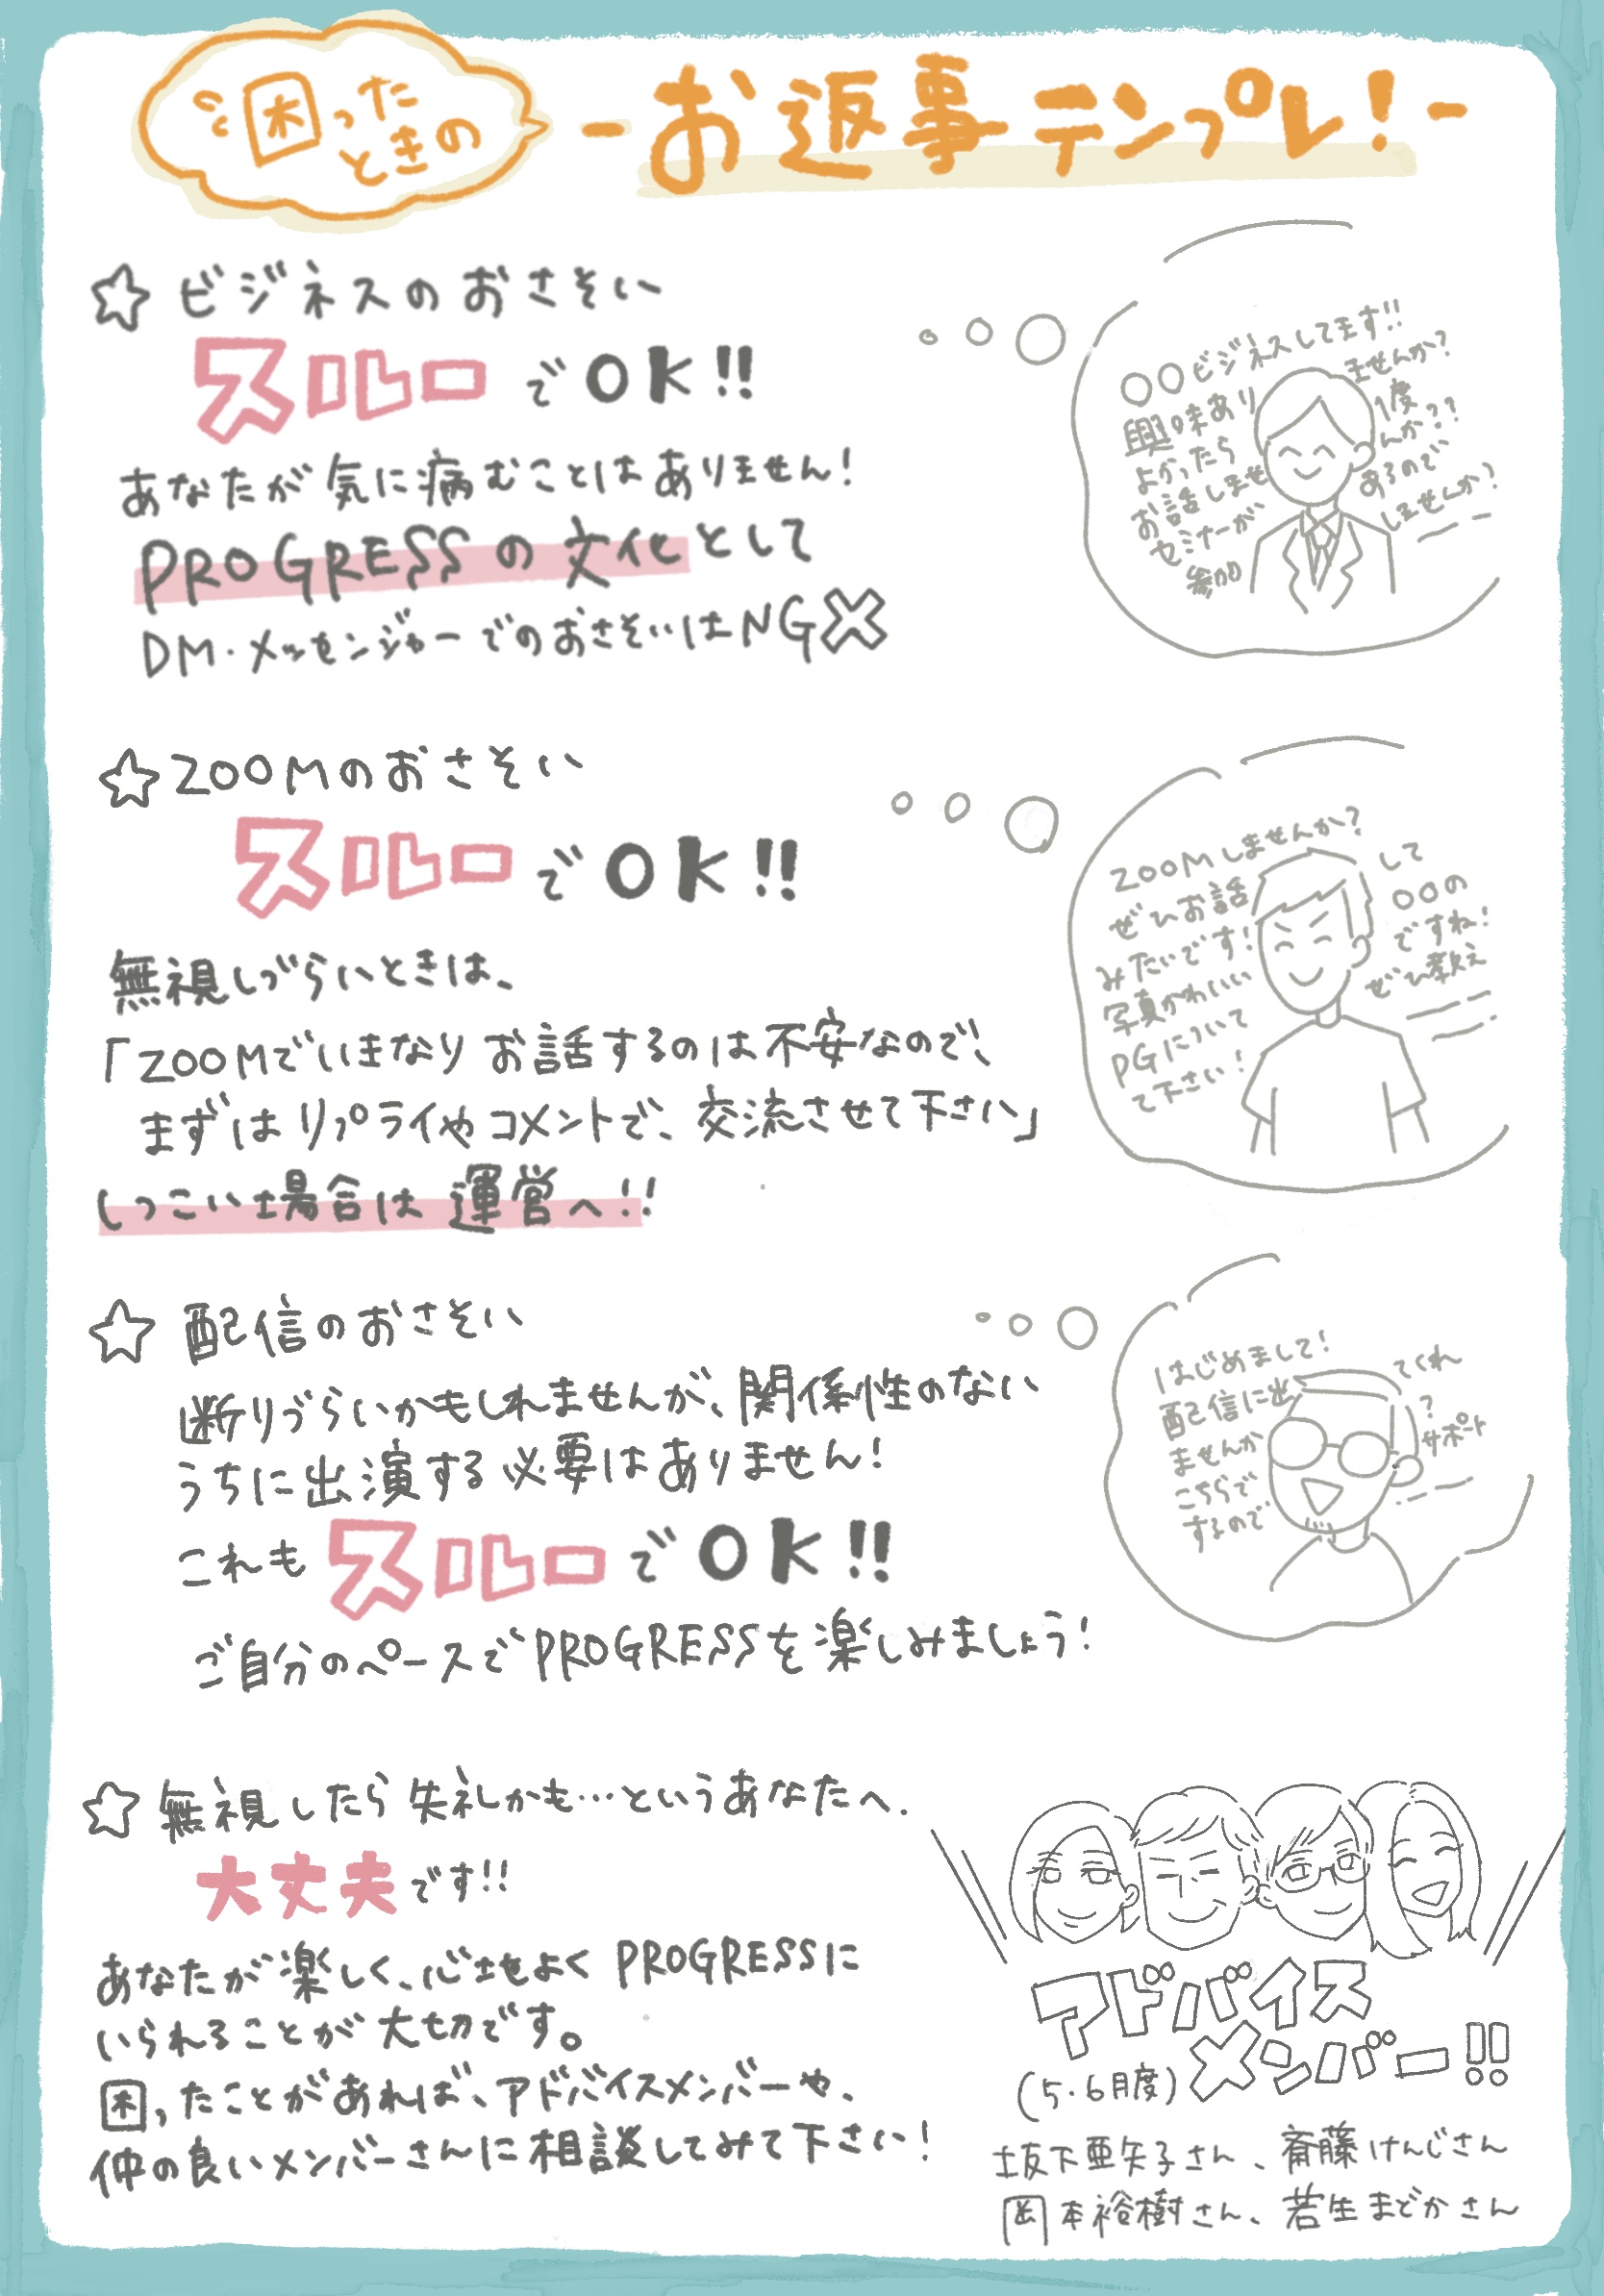 困った
ときの
-お返事テンプレ!-
☆ ビジネスのおさそい
スルーでOK!!
あなたが気に病むことはありません!
PROGRESSの文化として
DM・メッセンジャーでのおさそいはNG✕
〇〇ビジネスしてます!!
興味あり
ませんか?
よかったら
1度
お話しませ
んか??
セミナーが
あるので
参加
しませんか?
☆ZOOMのおさそい
スルーでOK!!
無視しづらいときは、
「ZOOMでいきなりお話するのは不安なので、
まずはリプライやコメントで、交流させて下さい」
しつこい場合は運営へ!!
ZOOMしませんか?
ぜひお話
して
みたいです!
〇〇の
写真かわいい
ですね!
PGについて
ぜひ教え
て下さい!
☆ 配信のおさそい
断りづらいかもしれませんが、関係性のない
うちに出演する必要はありません!
これもスルーでOK!!
ご自分のペースでPROGRESSを楽しみましょう!
はじめまして!
配信に出
てくれ
ませんか
?
こちらで
サポート
するので
☆ 無視したら失礼かも…というあなたへ.
大丈夫です!!
あなたが楽しく、心地よくPROGRESSに
いられることが大切です。
困ったことがあれば、アドバイスメンバーや、
仲の良いメンバーさんに相談してみて下さい!
アドバイス
(5・6月度)メンバー!!
坂下亜矢子さん、斎藤けんじさん
岡本裕樹さん、若生まどかさん